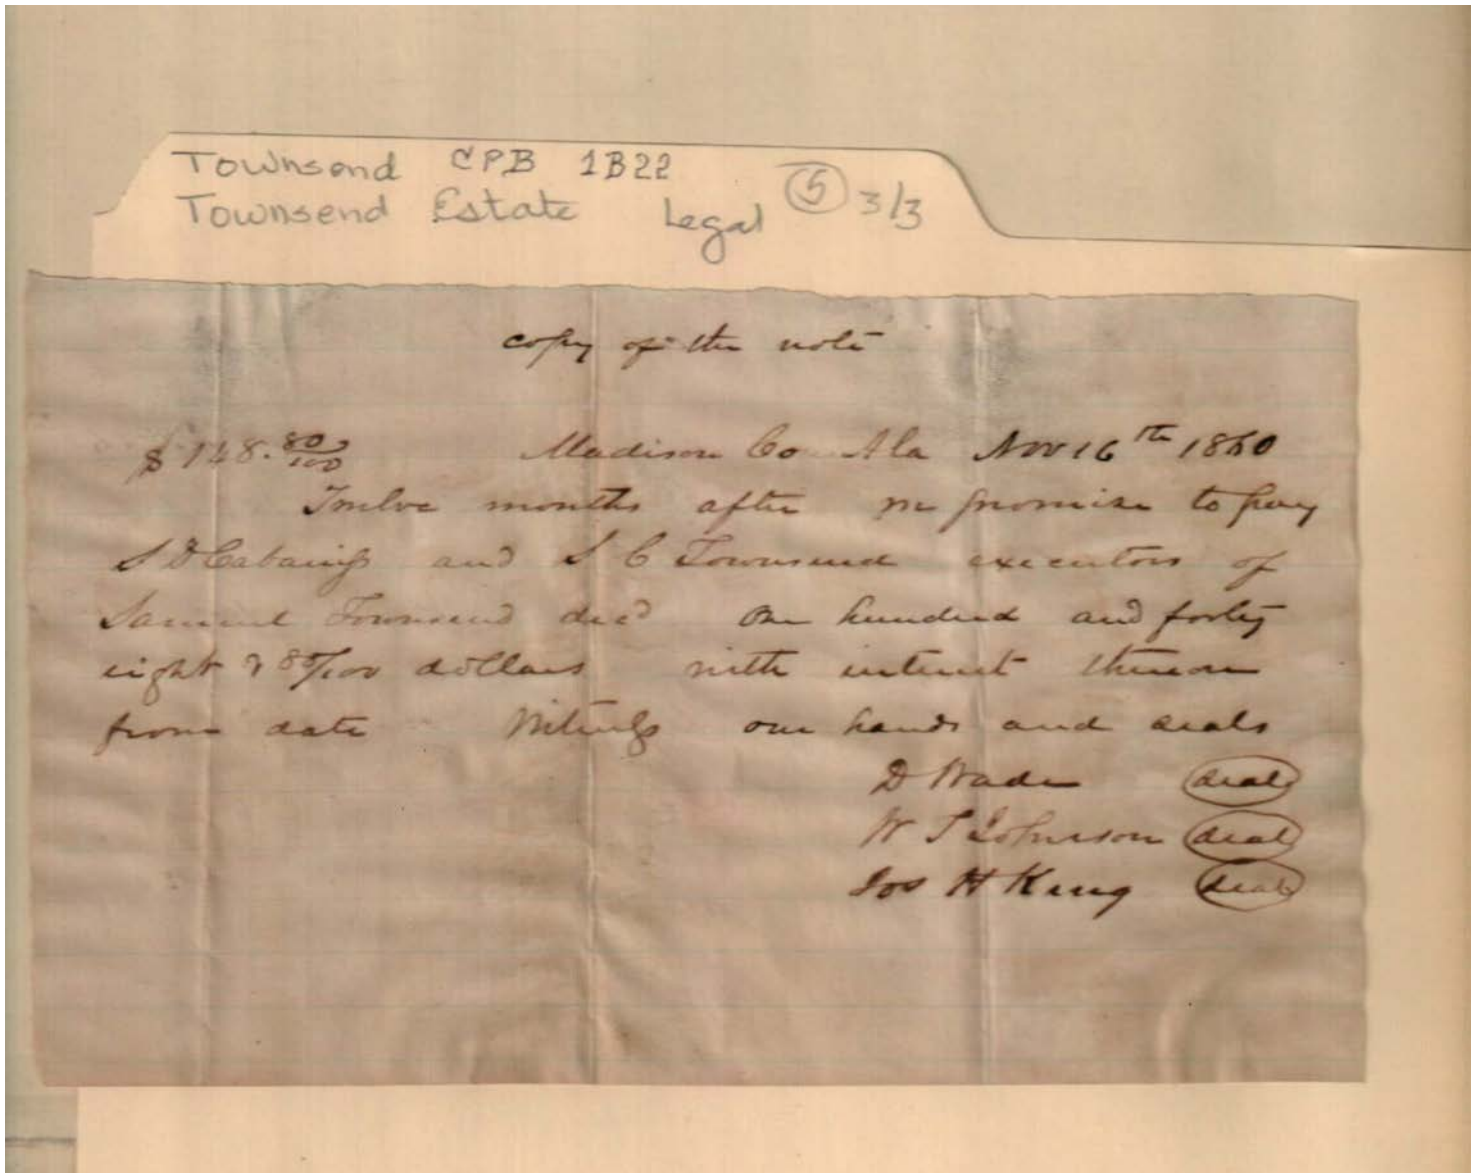 Townsend CPB 1B22
Townsend Estate Legal 5 3/3
copy of the note
$148.80/100 Madison Co Ala Nov 16th 1860
Twelve months after we promise to pay
S D Cabaniss and S C Townsend executors of
Samuel Townsend decd One hundred and forty
eight & 80/100 dollars with interest thereon
from date Witness our hands and seals
D Wade seal
W T Johnson seal
Jos H King seal